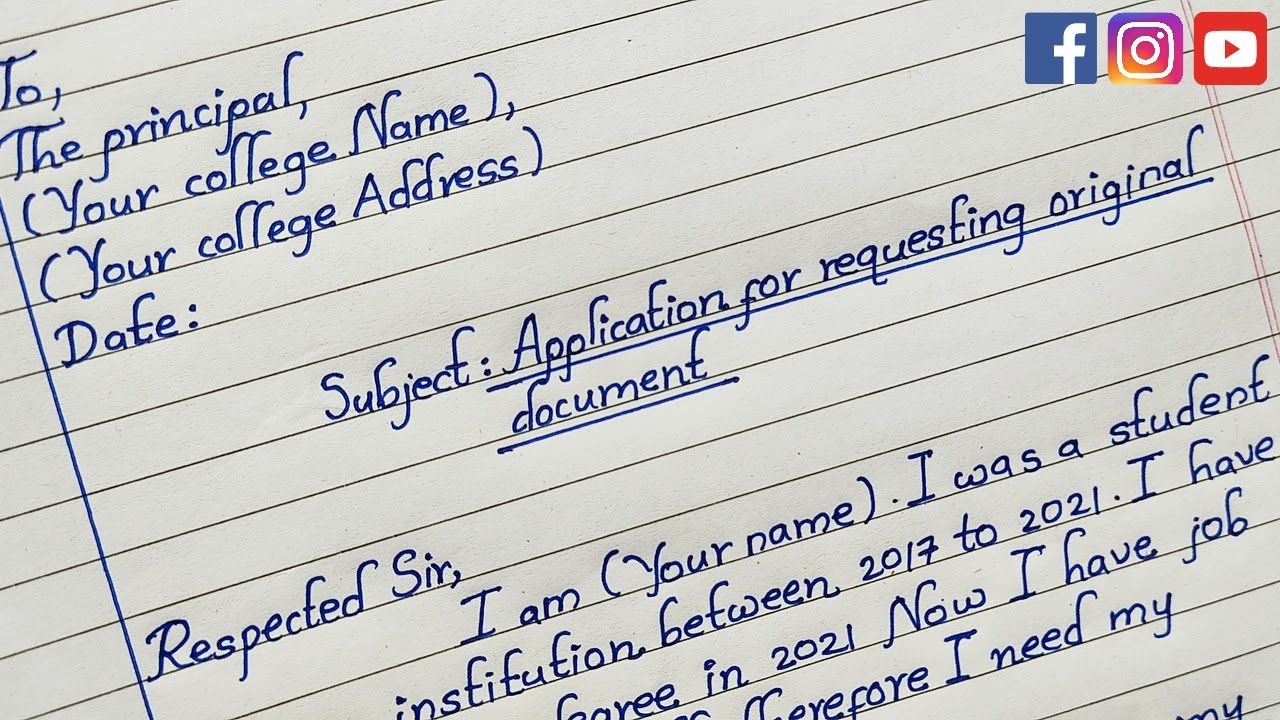 To,
The principal,
(Your college Name),
(Your college Address)
Date:
Subject: Application for requesting original
document
Respected Sir,
I am (Your name). I was a student
institution between 2017 to 2021. I have
in 2021 Now I have job
therefore I need my
my